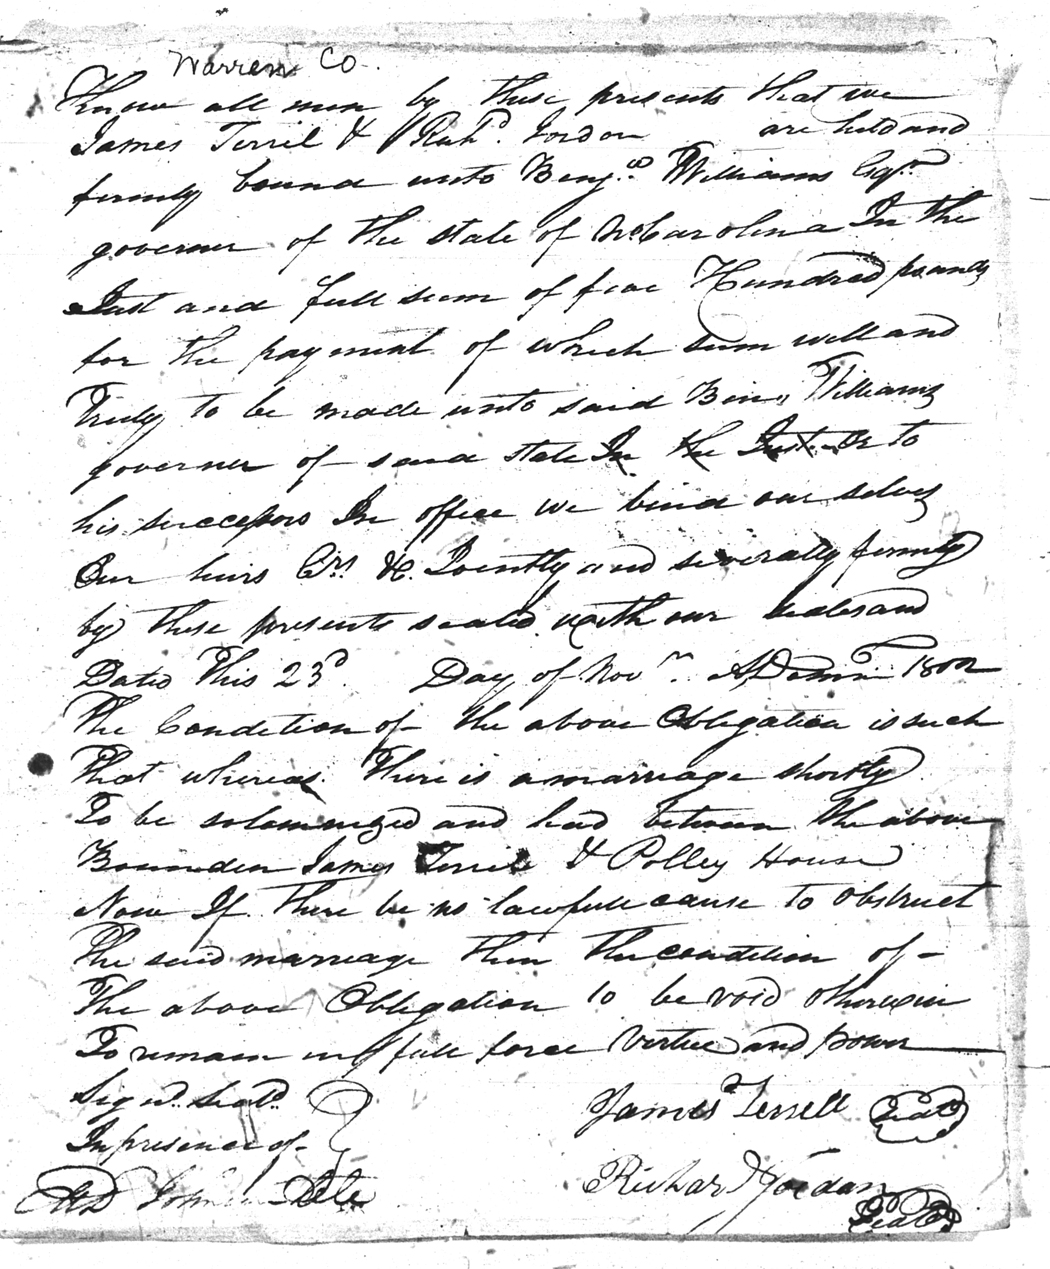 Warren Co.
Know all men by these presents that we
James Terril & Richd. Jordon are held and
firmly bound unto Benjn. Williams Esqr.
governer of the state of No Carolina In the
Just and full sum of five Hundred pounds
for the payment of which sum well and
Truly to be made unto said Benj. Williams
governer of said state In the Just Or to
his successors In office we bind our selves
Our heirs Exrs &c. Jointly and severally firmly
by these presents sealed with our seales and
Dated This 23d. Day of Novr. A Domini 1802
The Condition of the above Obligation is such
That whereas There is a marriage shortly
To be solemnized and had between the above
Bounden James Terrile & Polley House
Now If There be no lawfull cause to obstruct
The said marriage then the condition of
The above Obligation to be void otherwise
To remain in full force Vertue and power
Signd. Seald.
In presence of
James Terrell Seal
Richard Jordan Seal